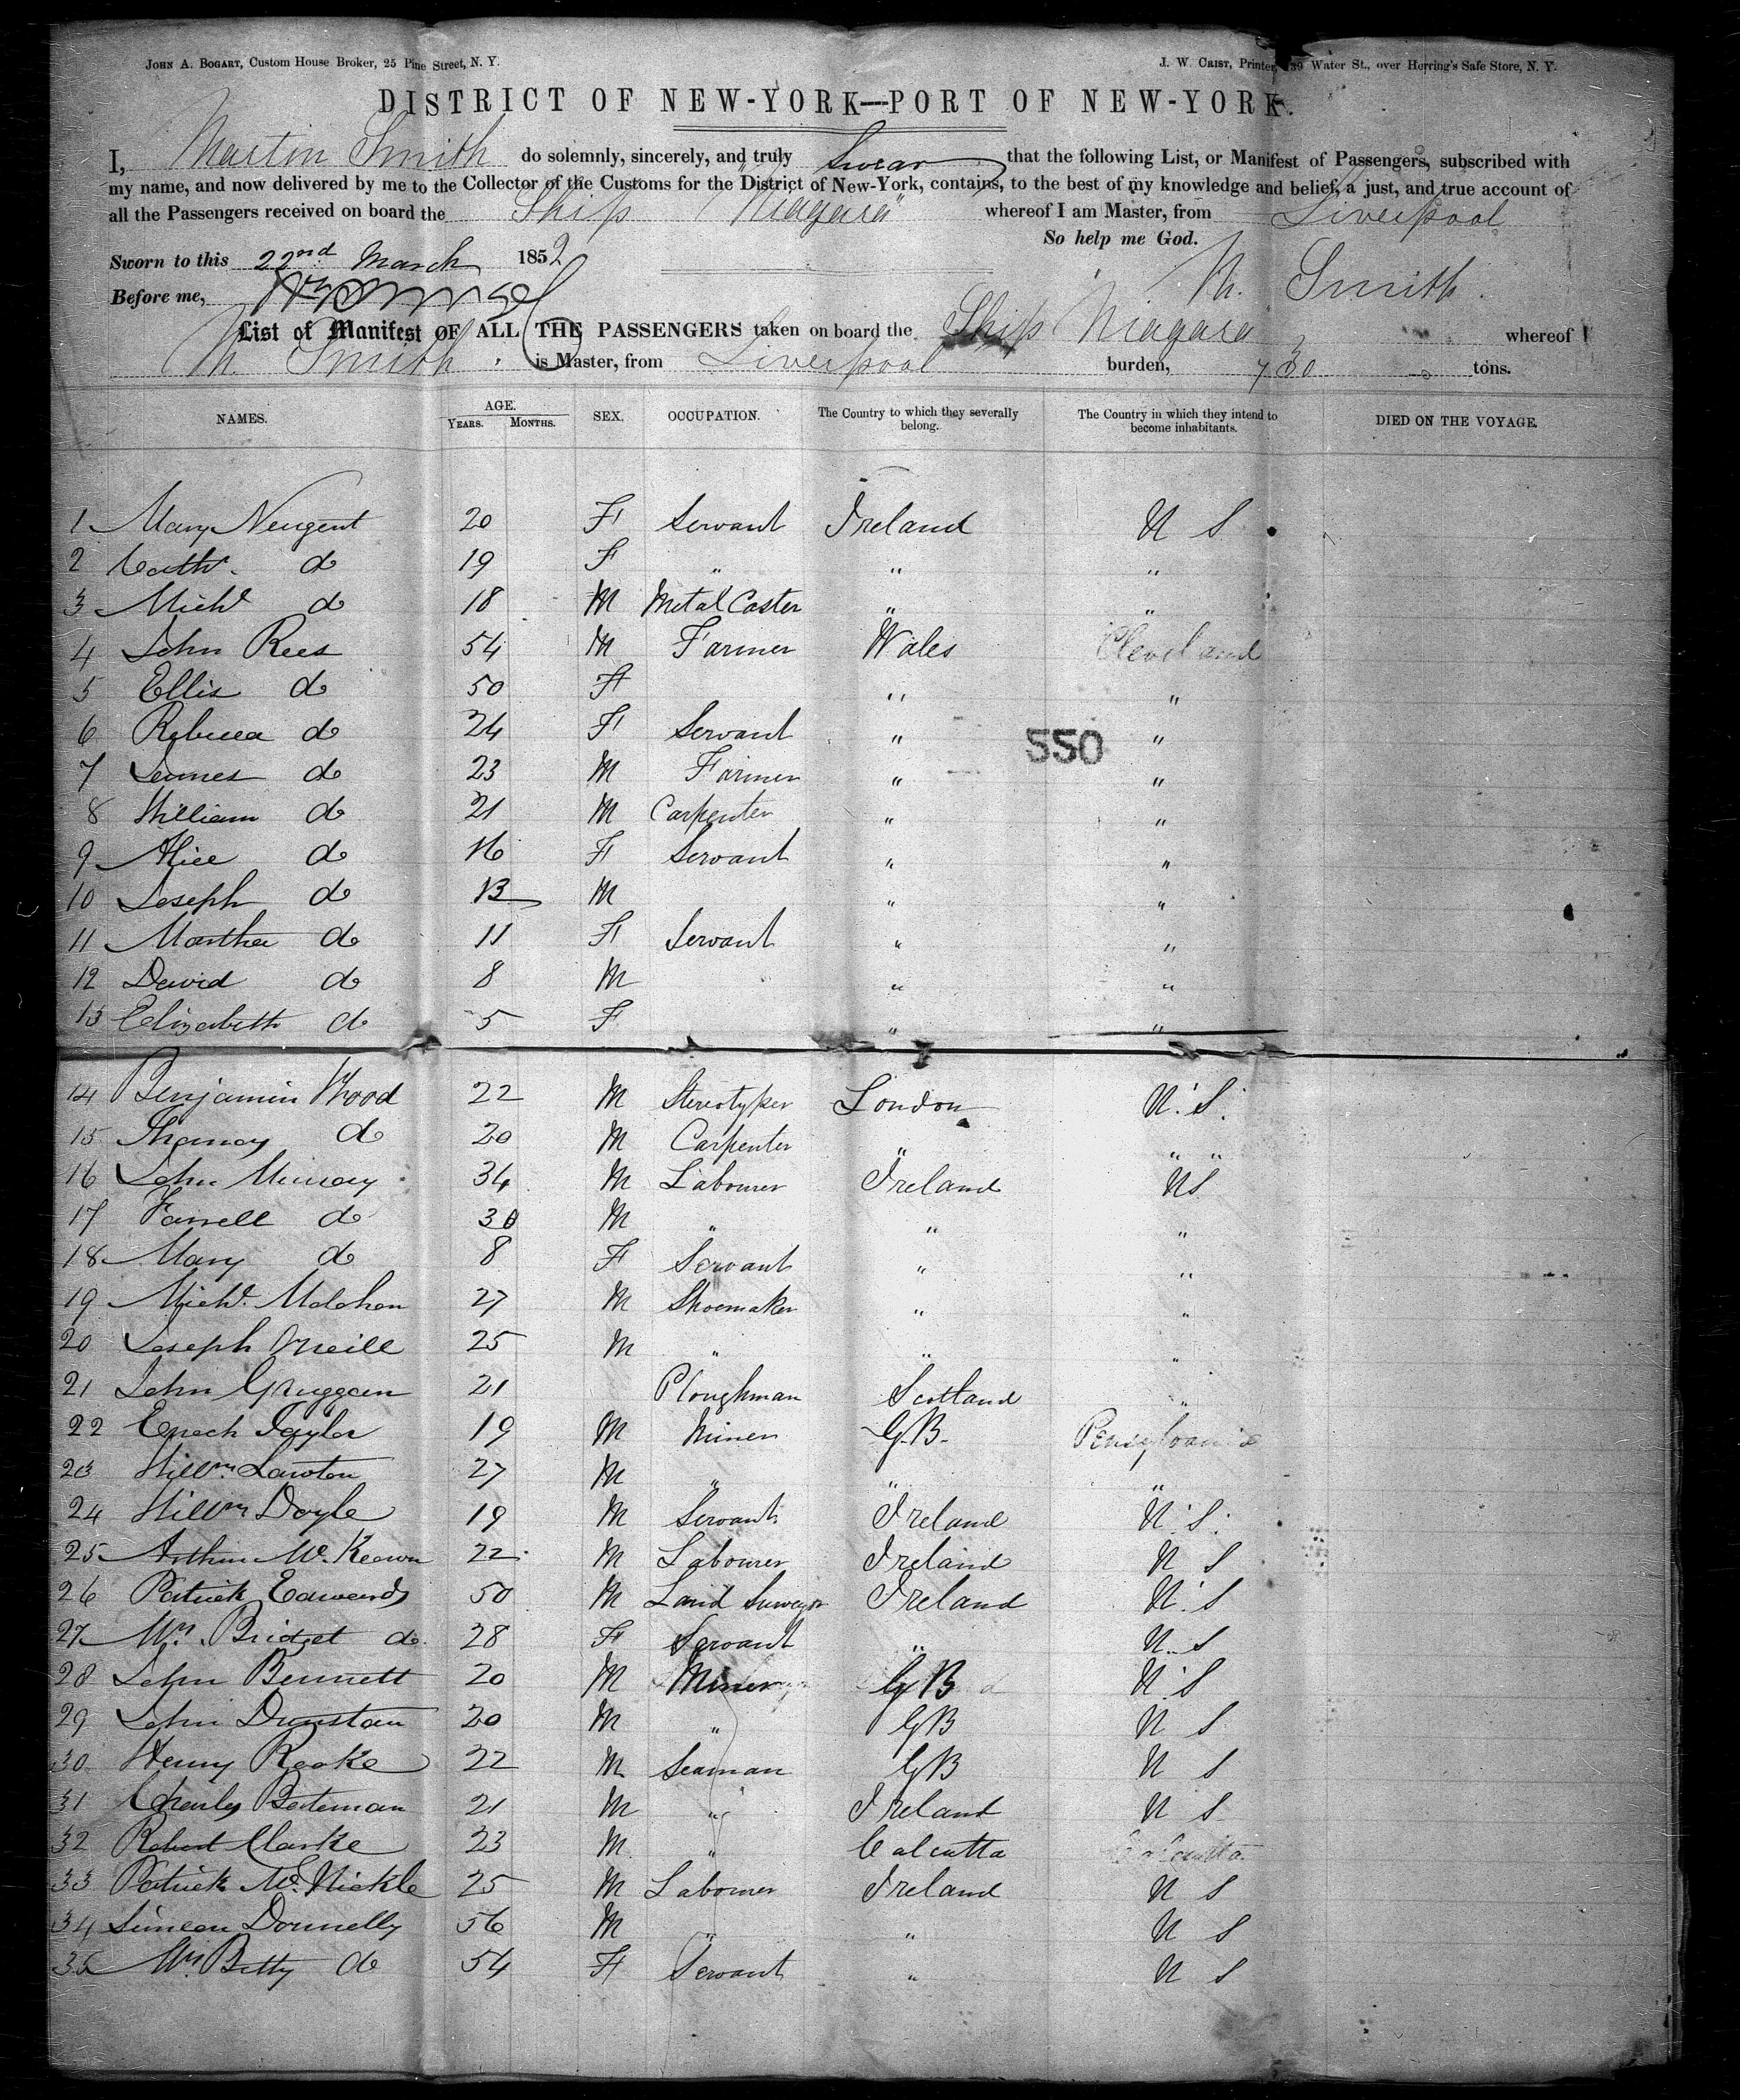 JOHN A. BOGART, Custom House Broker, 25 Pine Street, N. Y. J. W. CRIST, Printer, 139 Water St., over Herring's Safe Store, N. Y.
DISTRICT OF NEW-YORK—PORT OF NEW-YORK.
I, Martin Smith do solemnly, sincerely, and truly Swear that the following List, or Manifest of Passengers, subscribed with
my name, and now delivered by me to the Collector of the Customs for the District of New-York, contains, to the best of my knowledge and belief, a just, and true account of
all the Passengers received on board the Ship "Niagara" whereof I am Master, from Liverpool
So help me God.
Sworn to this 22nd March 1852
M. Smith.
Before me,
List or Manifest OF ALL THE PASSENGERS taken on board the Ship Niagara, whereof
M. Smith is Master, from Liverpool burden, 730 tons.
NAMES. AGE. SEX. OCCUPATION. The Country to which they severally belong. The Country in which they intend to become inhabitants. DIED ON THE VOYAGE.
YEARS. MONTHS.
1 Mary Neugent 20 F Servant Ireland U S
2 Cathr. do 19 F " " "
3 Michl do 18 M Metal Caster " "
4 John Rees 54 M Farmer Wales Cleveland
5 Ellis do 50 F " "
6 Rebecca do 24 F Servant " "
550
7 James do 23 M Farmer " "
8 William do 21 M Carpenter " "
9 Alice do 16 F Servant " "
10 Joseph do 13 M " "
11 Martha do 11 F Servant " "
12 David do 8 M " "
13 Elizabeth do 5 F " "
14 Benjamin Wood 22 M Stereotyper London U.S.
15 Thomas do 20 M Carpenter " " "
16 John Murray 34 M Labourer Ireland US
17 Farrell do 30 M " " "
18 Mary do 8 F Servant " "
19 Michl. Malohon 27 M Shoemaker " "
20 Joseph Oneill 25 M " " "
21 John Gruggan 21 Ploughman Scotland "
22 Enoch Taylor 19 M Miner G.B. Pensylvania
23 Willm. Lawton 27 M " " "
24 Willm Doyle 19 M Servant Ireland U.S.
25 Arthur Mc.Keown 22 M Labourer Ireland U S
26 Patrick Edwards 50 M Land Surveyor Ireland U.S
27 Mrs. Bridget do. 28 F Servant " U.S
28 John Bennett 20 M Miner GB U.S
29 John Dunstan 20 M " GB U S
30 Henry Rooke 22 M Seaman GB U S
31 Charles Bateman 21 M " Ireland U S
32 Robert Clarke 23 M " Calcutta Calcutta
33 Patrick Mc.Nickle 25 M Labourer Ireland U S
34 Simeon Donnelly 56 M " " U S
35 Mrs Betty do 54 F Servant " U S